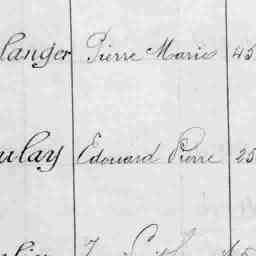 langer Pierre Marie 45
ulay Edouard Pierre 25